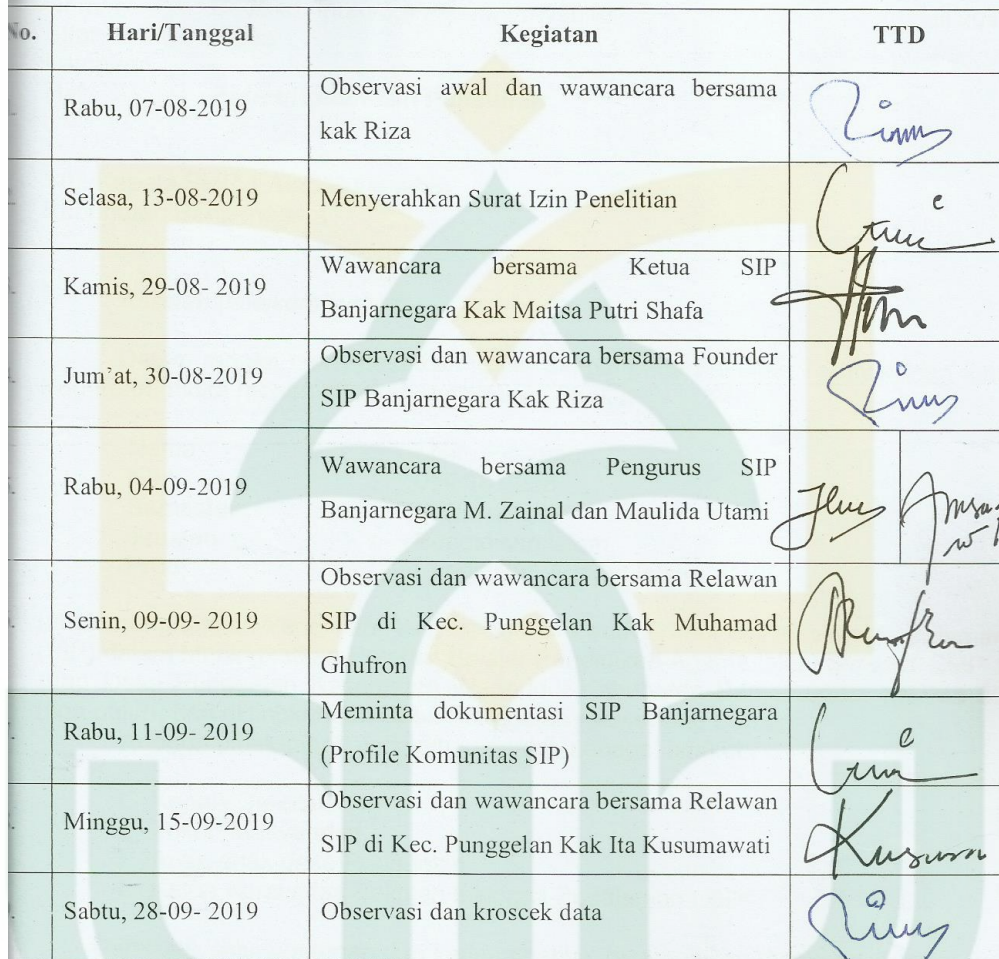 No. Hari/Tanggal Kegiatan TTD
Rabu, 07-08-2019 Observasi awal dan wawancara bersama
kak Riza
Selasa, 13-08-2019 Menyerahkan Surat Izin Penelitian
Kamis, 29-08- 2019 Wawancara bersama Ketua SIP
Banjarnegara Kak Maitsa Putri Shafa
Jum'at, 30-08-2019 Observasi dan wawancara bersama Founder
SIP Banjarnegara Kak Riza
Rabu, 04-09-2019 Wawancara bersama Pengurus SIP
Banjarnegara M. Zainal dan Maulida Utami
Senin, 09-09- 2019 Observasi dan wawancara bersama Relawan
SIP di Kec. Punggelan Kak Muhamad
Ghufron
Rabu, 11-09- 2019 Meminta dokumentasi SIP Banjarnegara
(Profile Komunitas SIP)
Minggu, 15-09-2019 Observasi dan wawancara bersama Relawan
SIP di Kec. Punggelan Kak Ita Kusumawati
Sabtu, 28-09- 2019 Observasi dan kroscek data